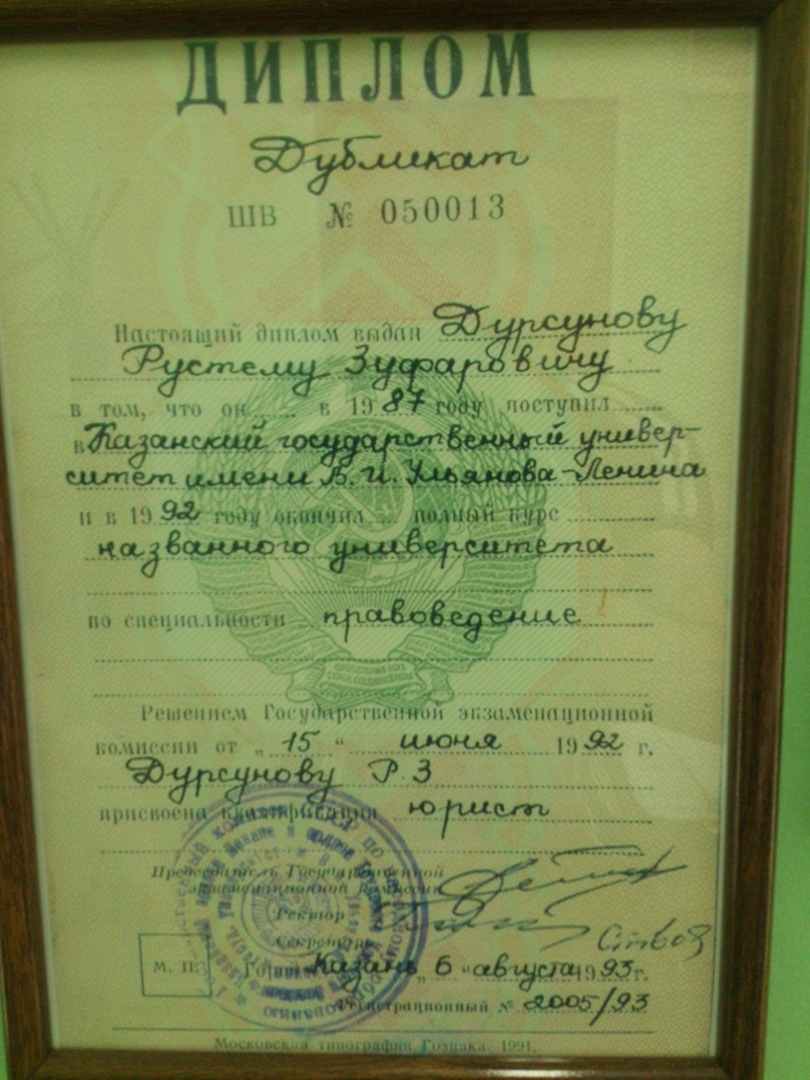 ДИПЛОМ
Дубликат
ШВ № 050013
Настоящий диплом выдан Дурсунову
Рустему Зуфаровичу
в том, что он в 1987 году поступил
в Казанский государственный универ-
ситет имени В. И. Ульянова-Ленина
и в 1992 году окончил полный курс
названного университета
по специальности правоведение
Решением Государственной экзаменационной
комиссии от „15“ июня 1992 г.
Дурсунову Р З
присвоена квалификация юрист
Председатель Государственной
экзаменационной комиссии
Ректор
Секретарь
М. П. Город Казань „6“ августа 1993 г.
Регистрационный № 2005/93
Московская типография Гознака. 1991.